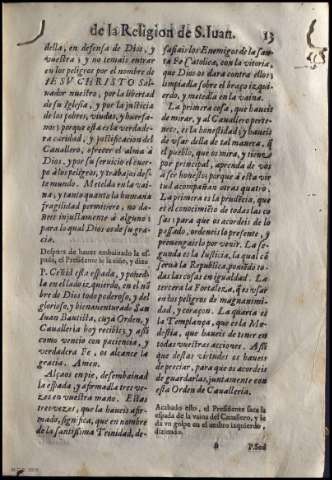 de la Religion de S. Iuan. 13
della, en defensa de Dios, y
vuestra; y no temais entrar
en los peligros por el nombre de
IESV CHRISTO Sal-
uador nuestro, por la libertad
de su Iglesia, y por la justicia
de los pobres, viudas, y huerfa-
nos; porque esta es la verdade-
ra caridad, y justificacion del
Cauallero, ofrecer el alma à
Dios, y por su seruicio el cuer-
po à los peligros, y trabajos des-
te mundo. Metelda en la vai-
na, y tanto quanto la humana
fragilidad permitiere, no da-
ñeis injustamente à alguno;
para lo qual Dios os de su gra-
cia.
Despues de hauer embainado la es-
pada, el Presidente la ciñe, y dize
P. Ceñid esta espada, y poned-
la en el lado izquierdo, en el nō-
bre de Dios todo poderoso, y del
glorioso, y bienauenturado San
Iuan Bautista, cuya Orden, y
Caualleria hoy recibis; y assi
como vencio con paciencia, y
verdadera Fe, os alcance la
gracia. Amen.
Alçaos en pie, desembainad
la espada, y afirmadla tres ve-
zes en vuestra mano. Estas
tres vezes, que la haueis afir-
mado, significa, que en nombre
de la santissima Trinidad, de-
safiais los Enemigos de la san-
ta Fe Catolica, con la vitoria,
que Dios os dará contra ellos;
limpiadla sobre el braço izqui-
erdo, y metedla en la vaina.
La primera cosa, que haueis
de mirar, y al Cauallero perte-
nece, es la honestidad; y haueis
de vsar della de tal manera, q̄
el pueblo, que os mira, y tiene
por principal, aprenda de vos
à ser honesto; porque à esta vir-
tud acompañan otras quatro.
La primera es la prudēcia, que
es el conocimiēto de todas las co-
sas; para que os acordeis de lo
passado, ordeneis lo presente, y
preuengais lo por venir. La se-
gunda es Iusticia, la qual cō-
serua la Republica, poniēdo to-
das las cosas en igualdad. La
tercera la Fortaleza, q̄ es vsar
en los peligros de magnanimi-
dad, y coraçon. La quarta es
la Templança, que es la Mo-
destia, que haueis de tener en
todas vuestras acciones. Assi
que destas virtudes os haueis
de preciar, para que os acordeis
de guardarlas, juntamente con
esta Orden de Caualleria.
Acabado esto, el Presidente saca la
espada de la vaina del Cauallero, y le
dà vn golpe en el ombro izquierdo,
diziendo.
P. Sed